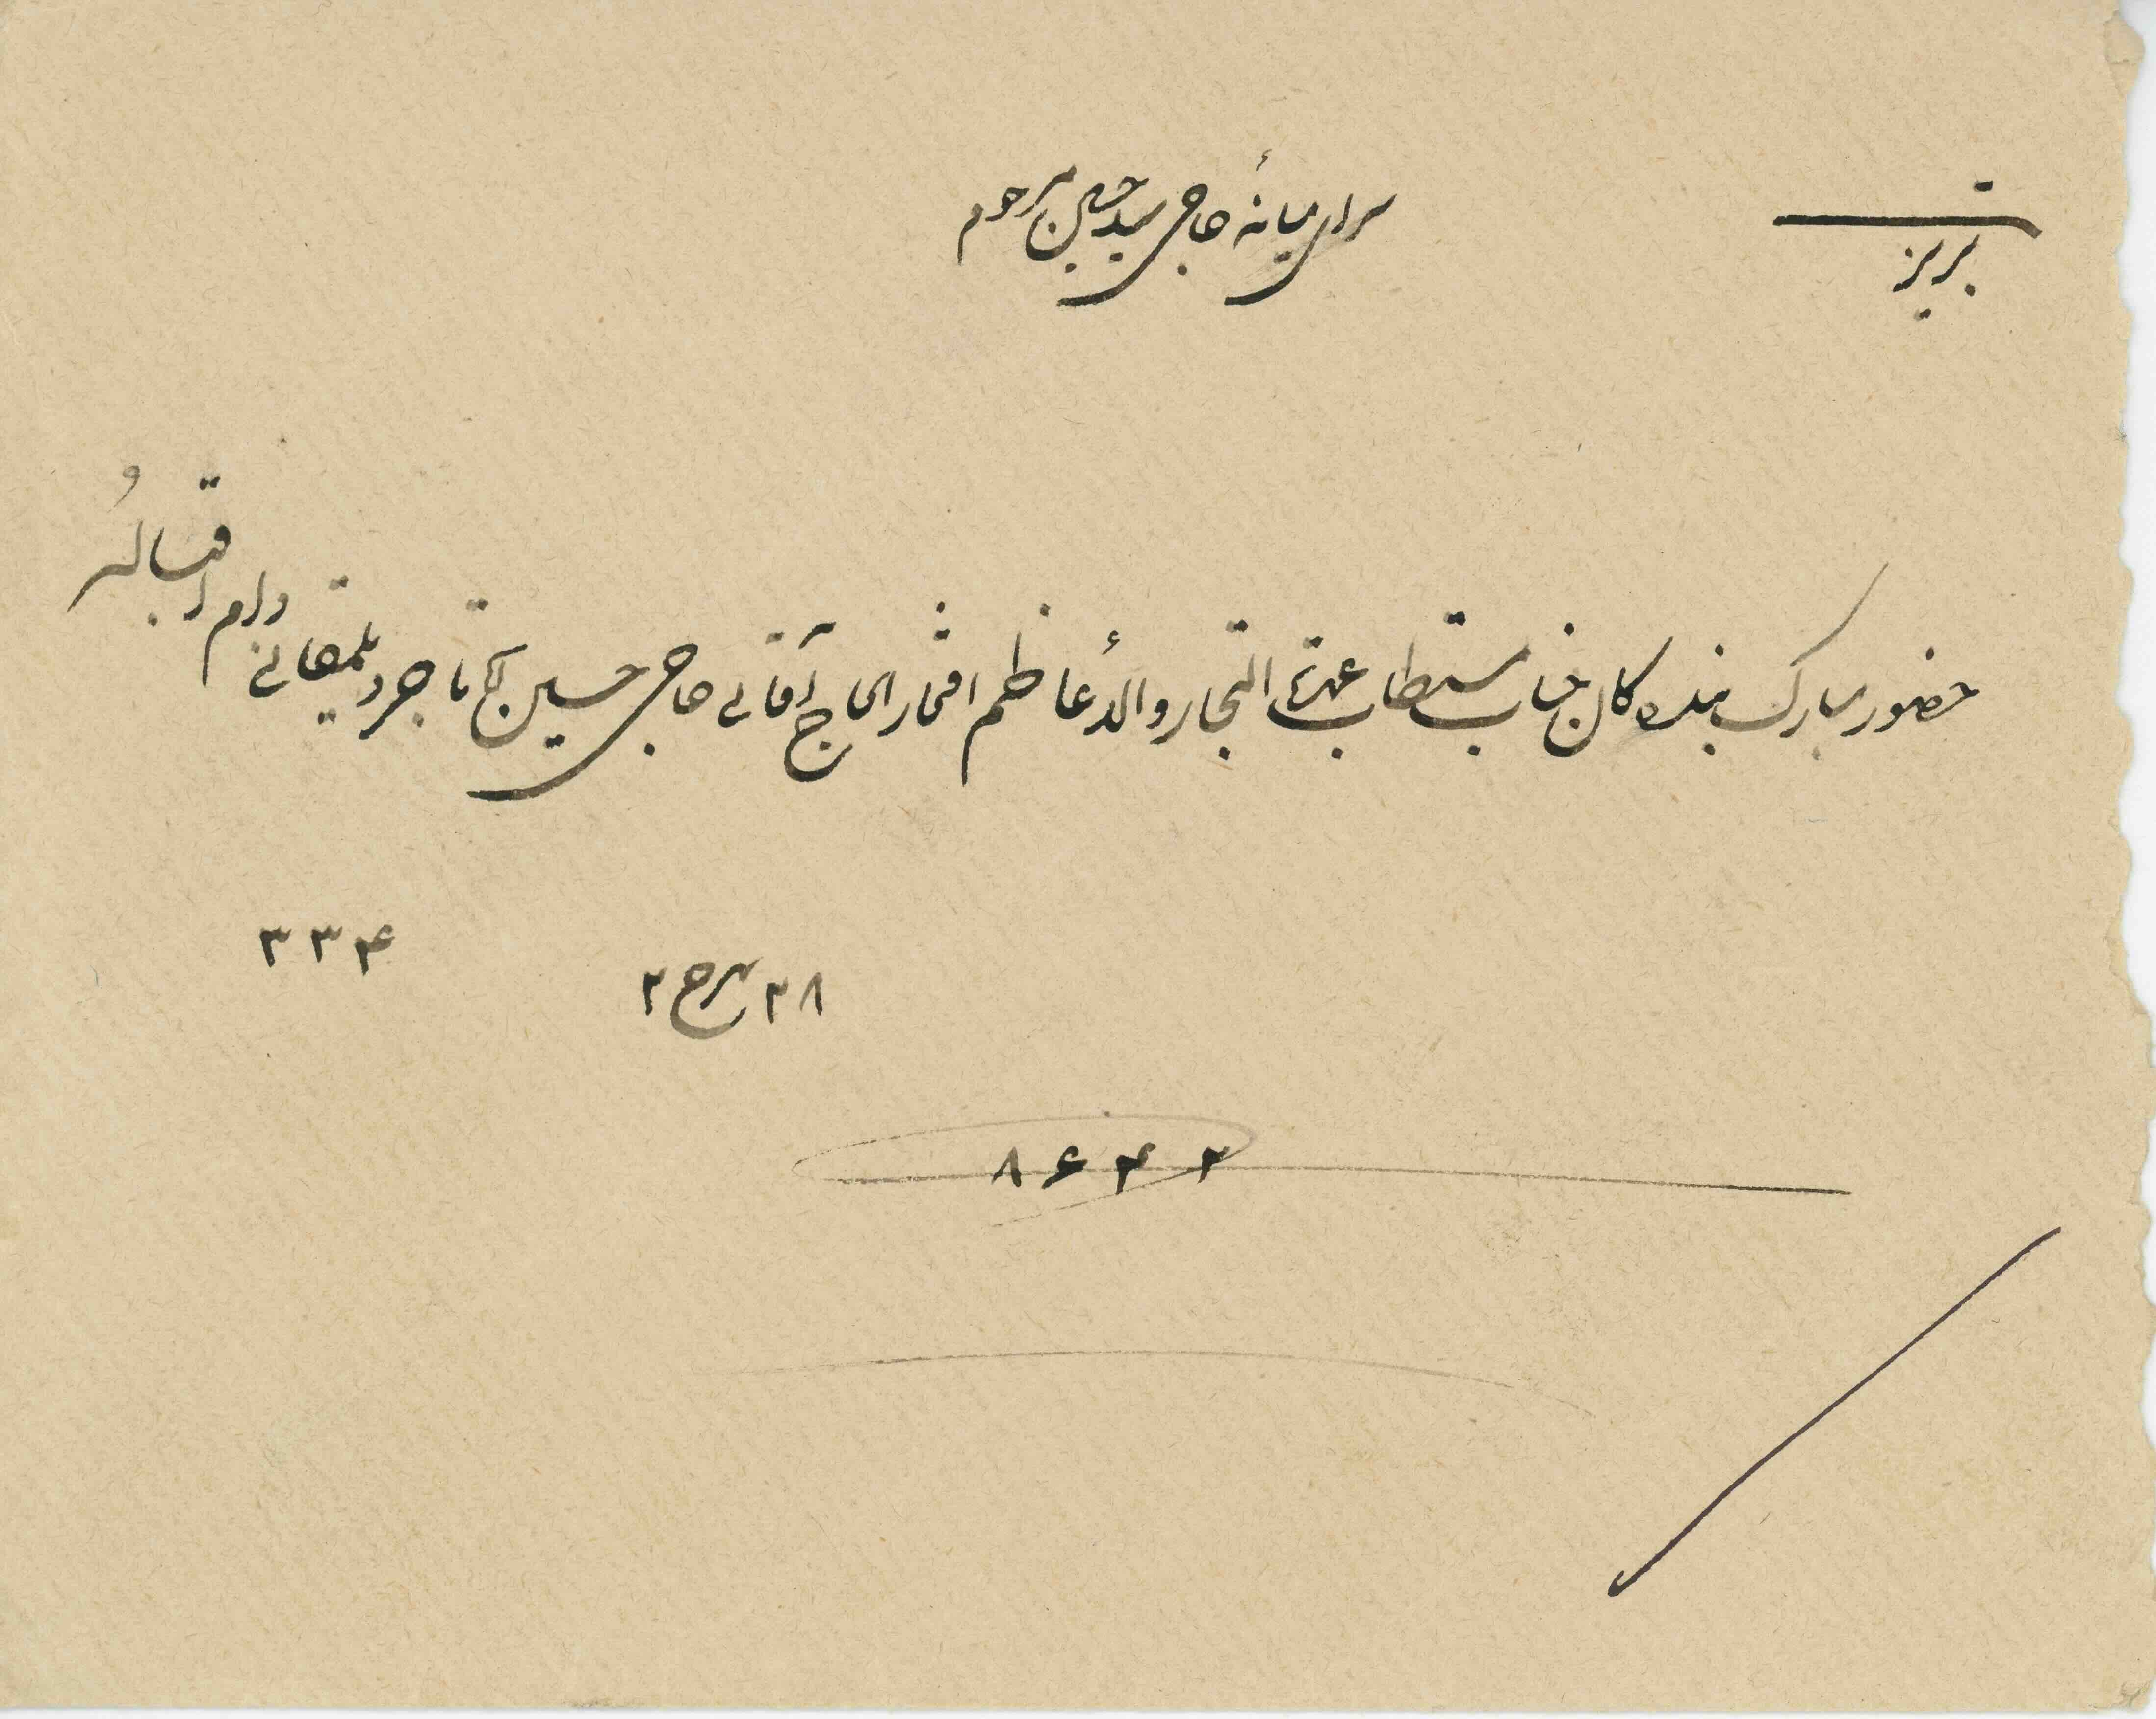 تبریز
سرای میانهٔ حاجی سید حسین مرحوم
حضور مبارک بندگان جناب مستطاب عمدة التجار والأعاظم افتخار الحاج آقای حاجی حسین آقا تاجر دیلمقانی دام اقباله
۲۸ ج ۲ ۳۳۴
۸۶۴۲